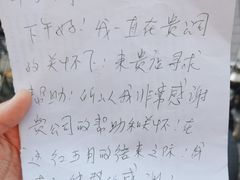 下午好！我一直在贵公司
的关怀下；来贵社寻求
帮助！所以我非常感谢
贵公司的帮助和关怀！在
这红五月的结束之际；我